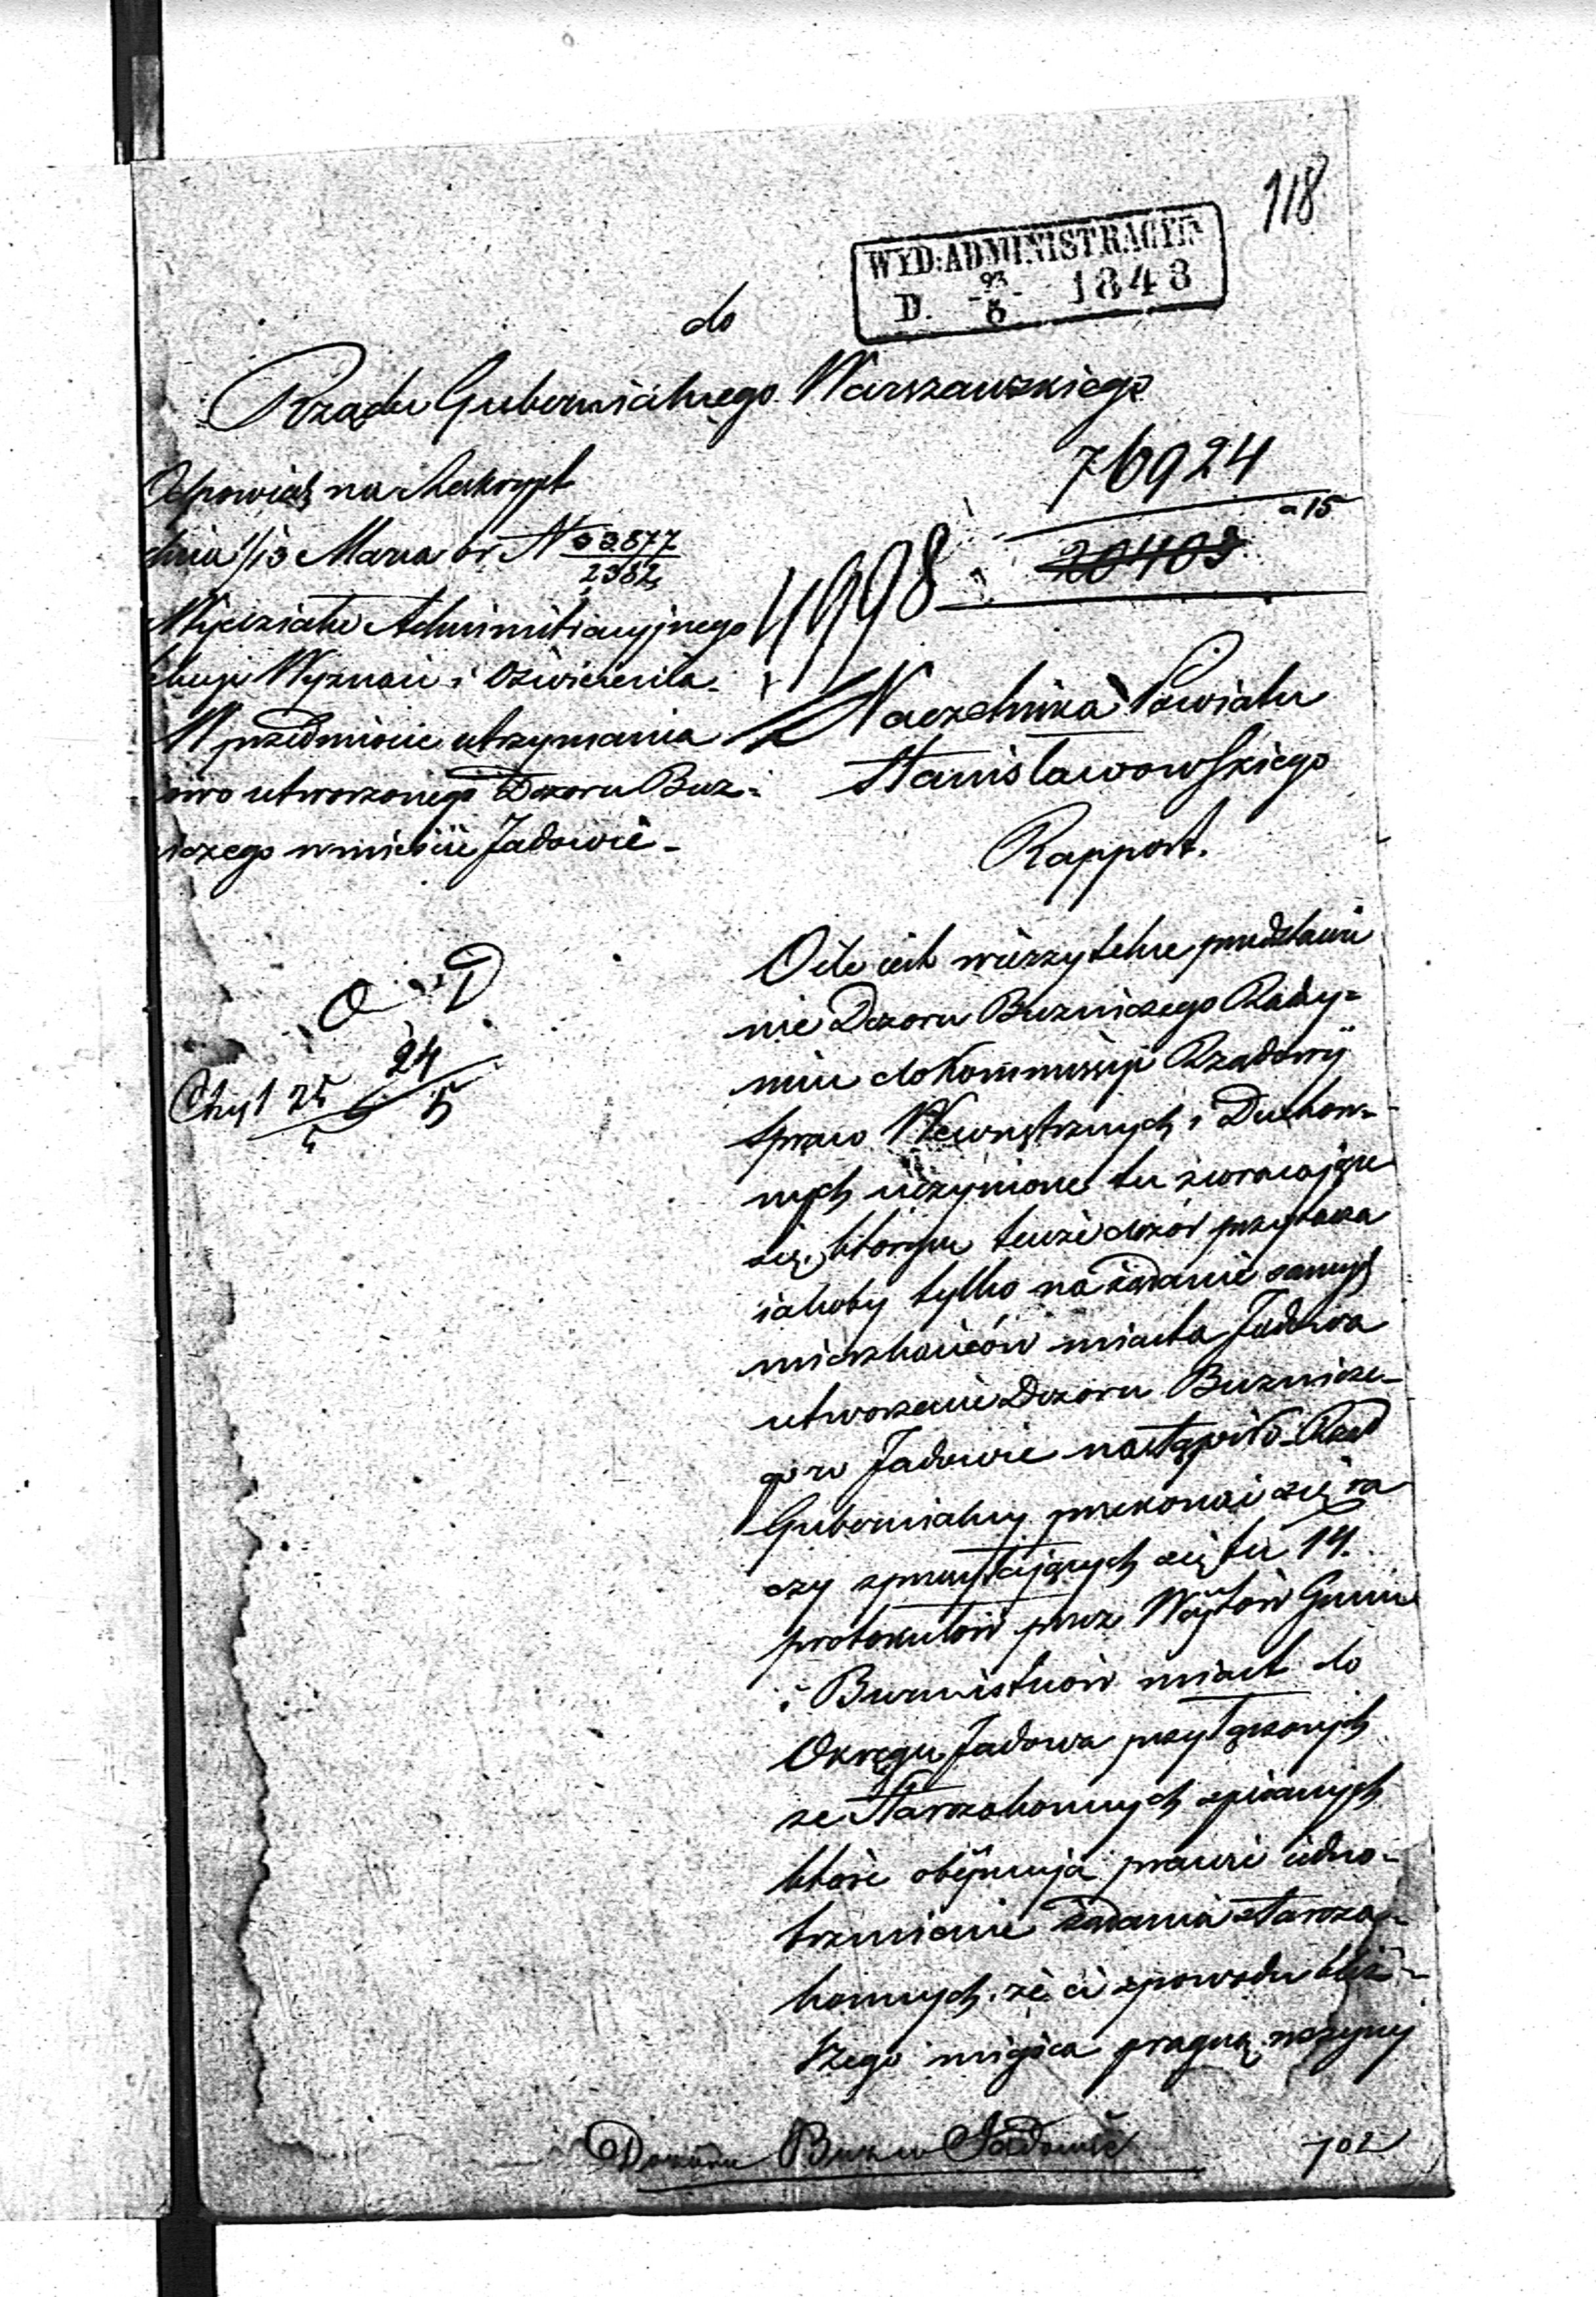 118
WYD: ADMINISTRACYJN
D. 23/5 1848
do
Rządu Gubernialnego Warszawskiego
76924
a 15
20403
4998
Odpowiedź na Reskrypt
dnia 1/13 Marca br. N 33877/2382
Wydziału Administracyjnego
Wyznań i Oświecenia
W przedmiocie utrzymania
owo utworzonego Dozoru Buz=
iczego w mieście Jadowie -
Naczelnika Powiatu
Stanisławowskiego
Rapport.
24/5
O ile jest wierzytelne przedstawie
nie Dozoru Buzniczego Radzy=
minie do Kommissyi Rządowy
Spraw Wewnętrznych i Duchow=
nych uczynione tu zwracające
się, którym tenże dozór przytacza
jakoby tylko na żądanie samych
mieszkańców miasta Jadowa
utworzenie Dozoru Buznicze-
go w Jadowie nastąpiło - Rząd
Gubernialny przekonać się ra
czy z przyłączających się tu 14.
protokułów przez Wójtów Gmin
i Burmistrzów miast do
Okręgu Jadowa przyłączonych
ze Starozakonnych spisanych
które obejmują prawie jedno-
brzmienie żądania staroza-
konnych, że ci z powodu bliż-
szego miejsca pragną
Dozoru Buzn w Jadowie
702